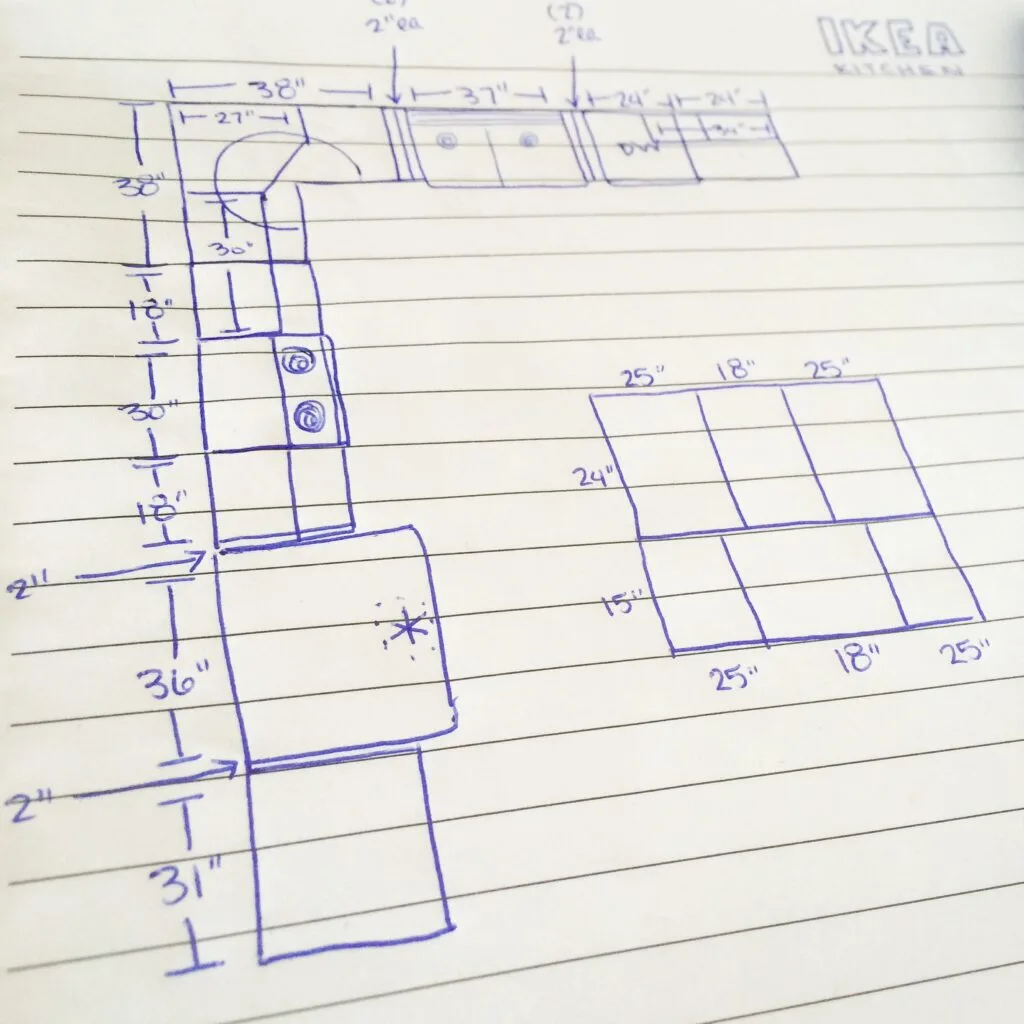 IKEA
KITCHEN
2"ea
2"ea
38"
37"
24"
24"
27"
DW
38"
30"
18"
30"
18"
2"
36"
2"
31"
25"
18"
25"
24"
15"
25"
18"
25"